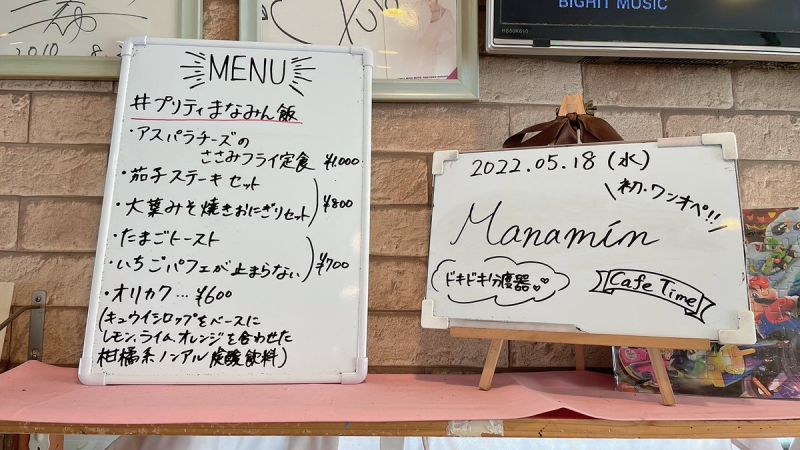 2010.8.2
BIGHIT MUSIC
MENU
#プリティまなみん飯
・アスパラチーズの
ささみフライ定食 ¥1,000
・茄子ステーキセット
・大葉みそ焼きおにぎりセット ¥800
・たまごトースト
・いちごパフェが止まらない ¥700
・オリカク…¥600
(キュウイシロップをベースに
レモン、ライム、オレンジを合わせた
柑橘系ノンアル炭酸飲料)
2022.05.18(水)
\初・ワンオペ!!
Manamin
ドキドキ!分度器♡♡
Cafe Time